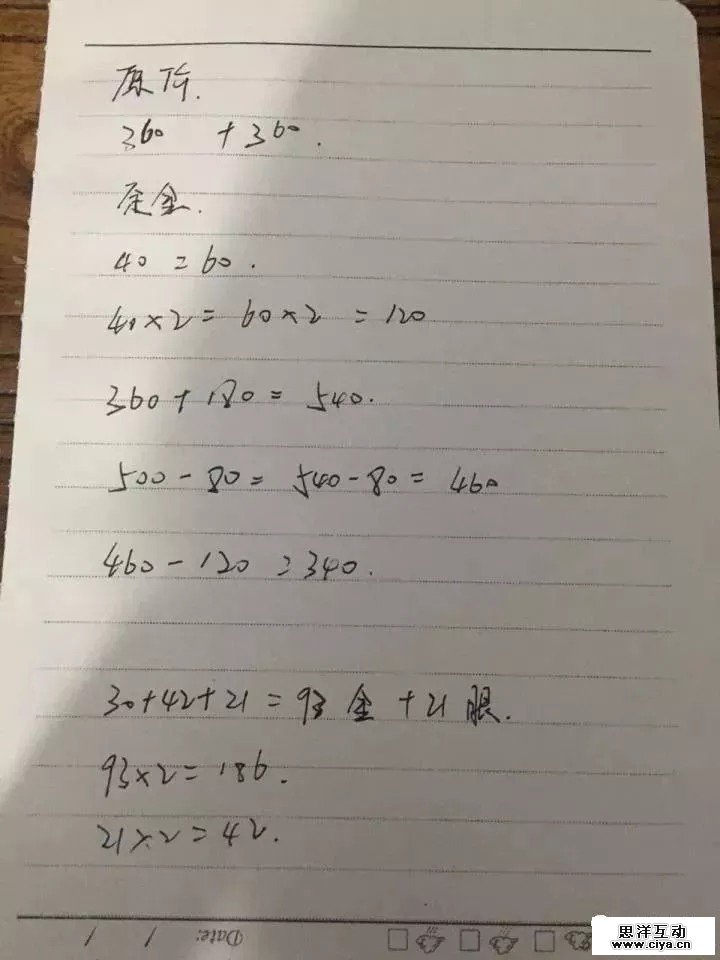 原价.
360 +360.
定金.
40 =60.
40×2= 60×2 =120
360+180= 540.
500-80= 540-80= 460
460-120 =340.
30+42+21 =93 金 +21 眼.
93×2=186.
21×2=42.
Date: / /
思洋互动
www.ciya.cn